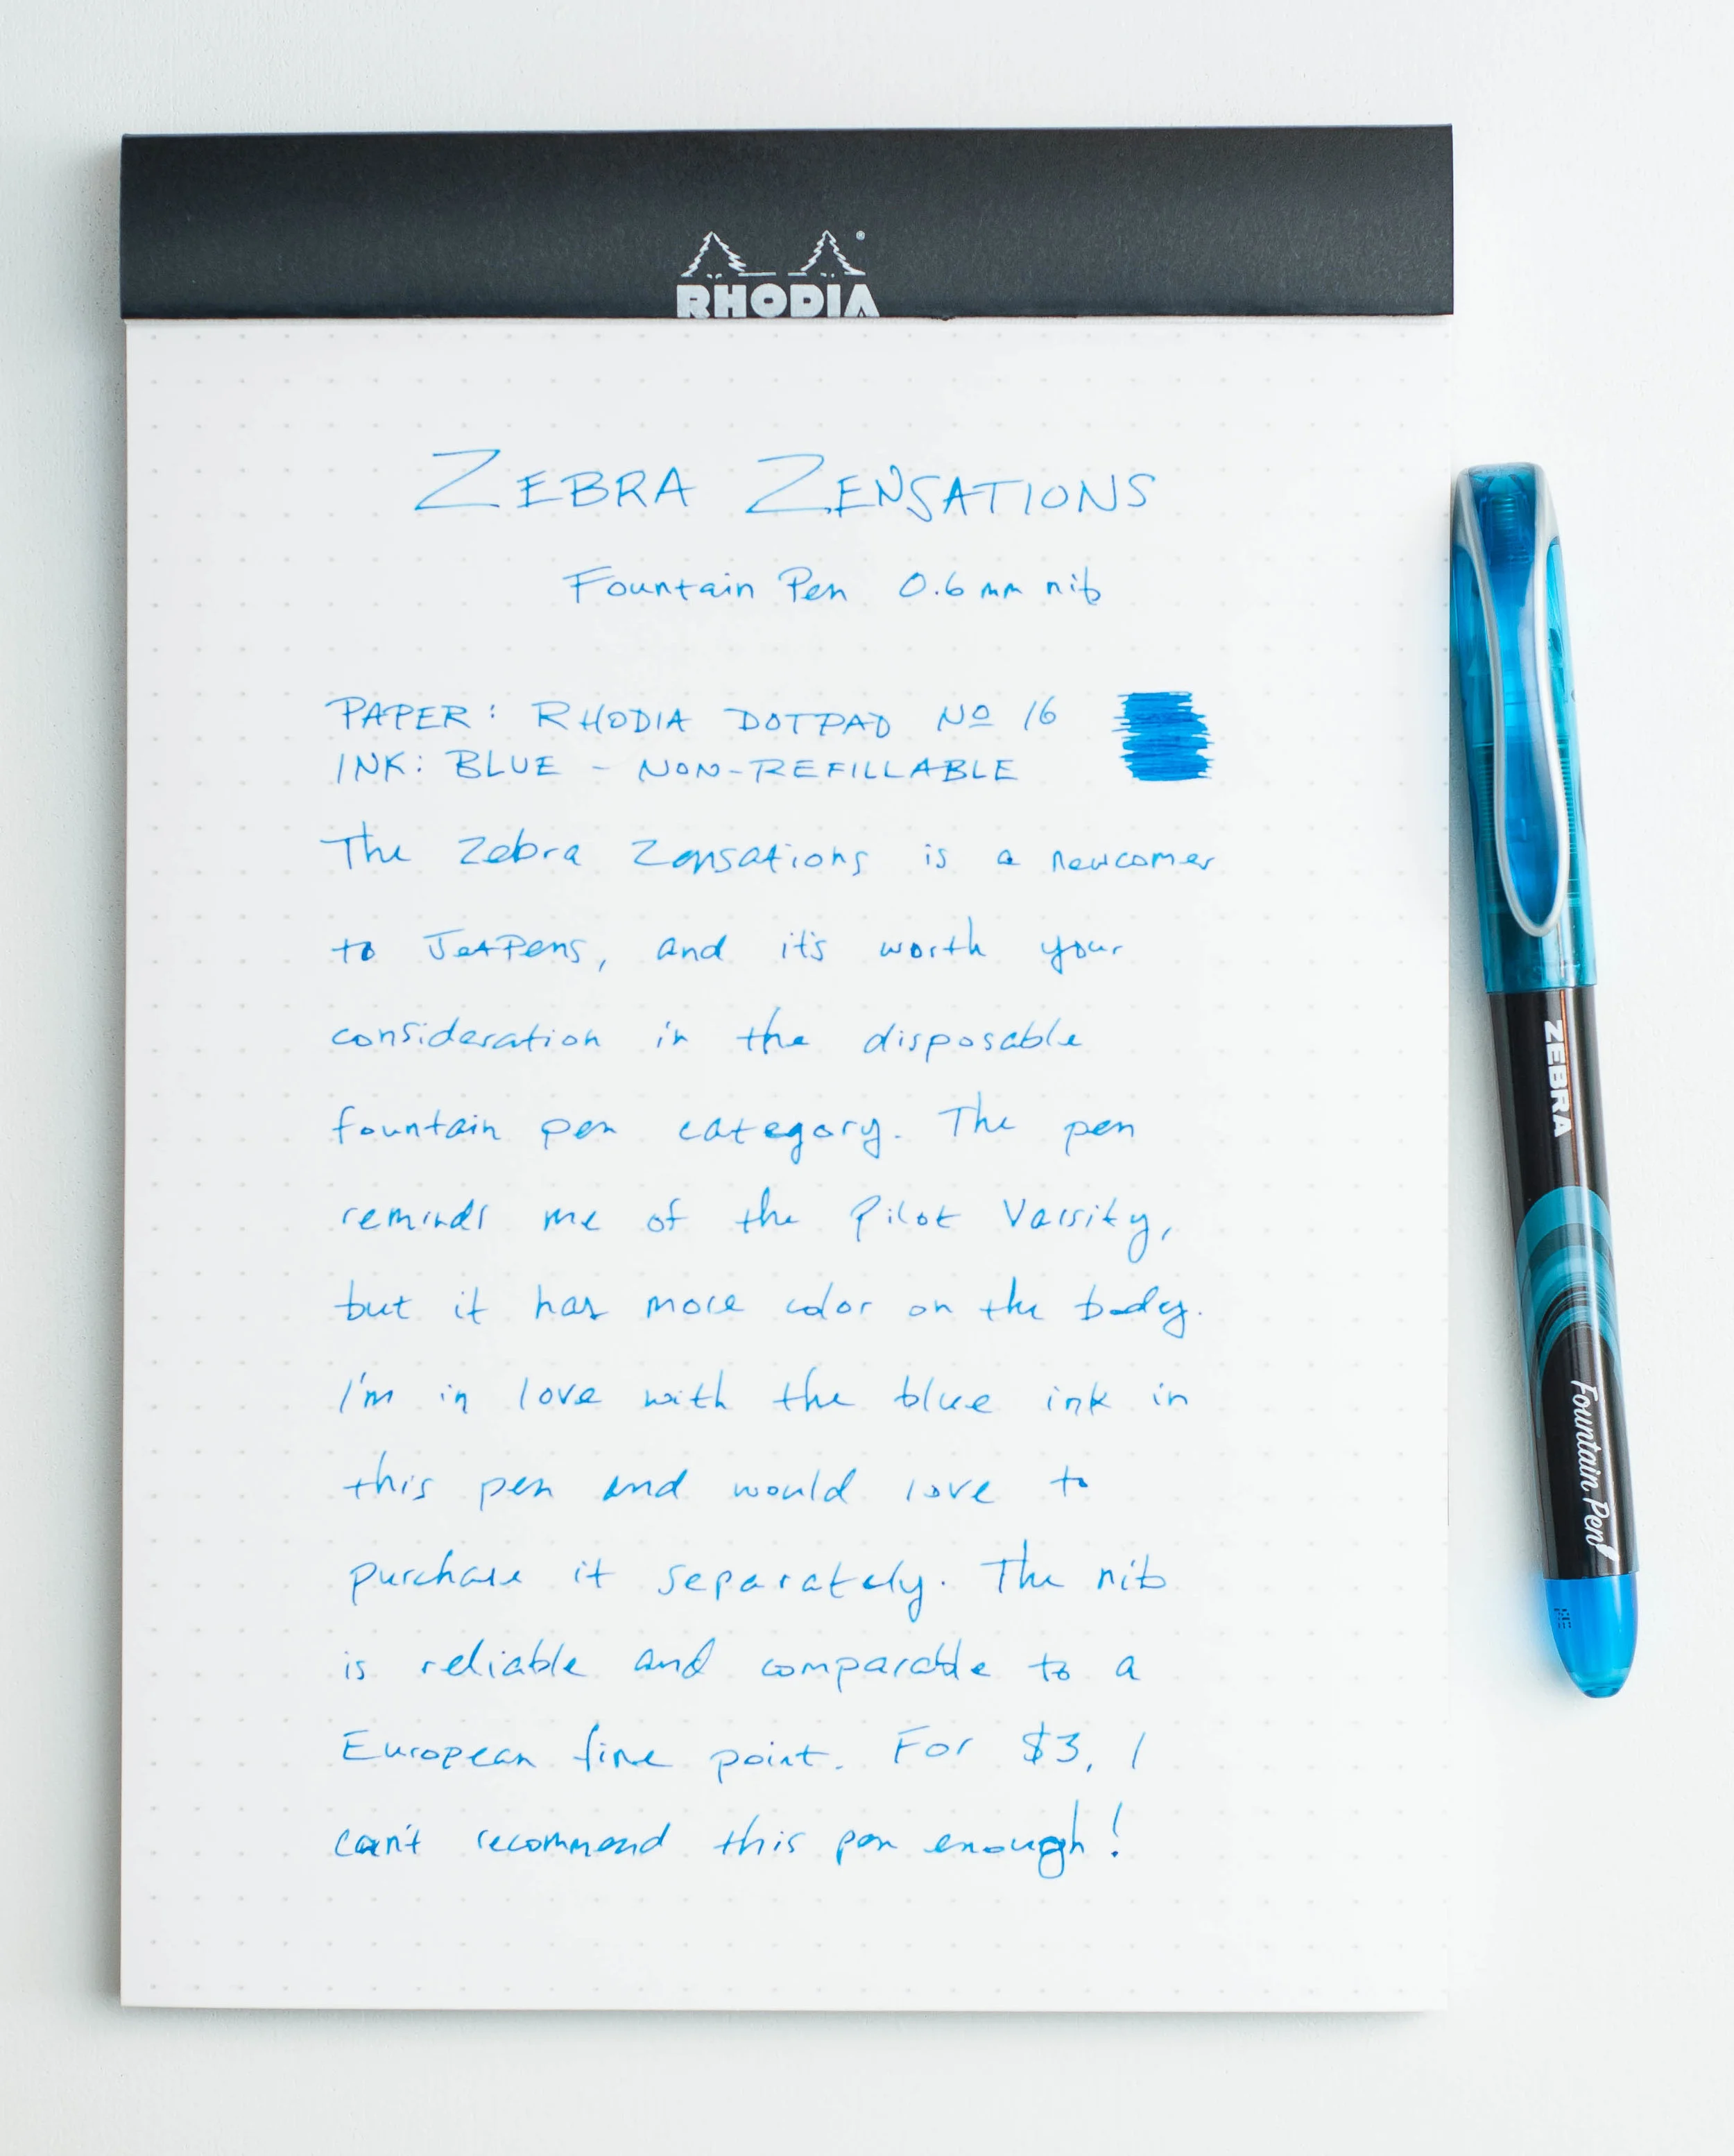 RHODIA
ZEBRA ZENSATIONS
Fountain Pen 0.6 mm nib
PAPER: RHODIA DOTPAD Nº 16
INK: BLUE - NON-REFILLABLE
The Zebra Zensations is a newcomer
to JetPens, and it's worth your
consideration in the disposable
fountain pen category. The pen
reminds me of the Pilot Varsity,
but it has more color on the body.
I'm in love with the blue ink in
this pen and would love to
purchase it separately. The nib
is reliable and comparable to a
European fine point. For $3, I
can't recommend this pen enough!
ZEBRA
Fountain Pen